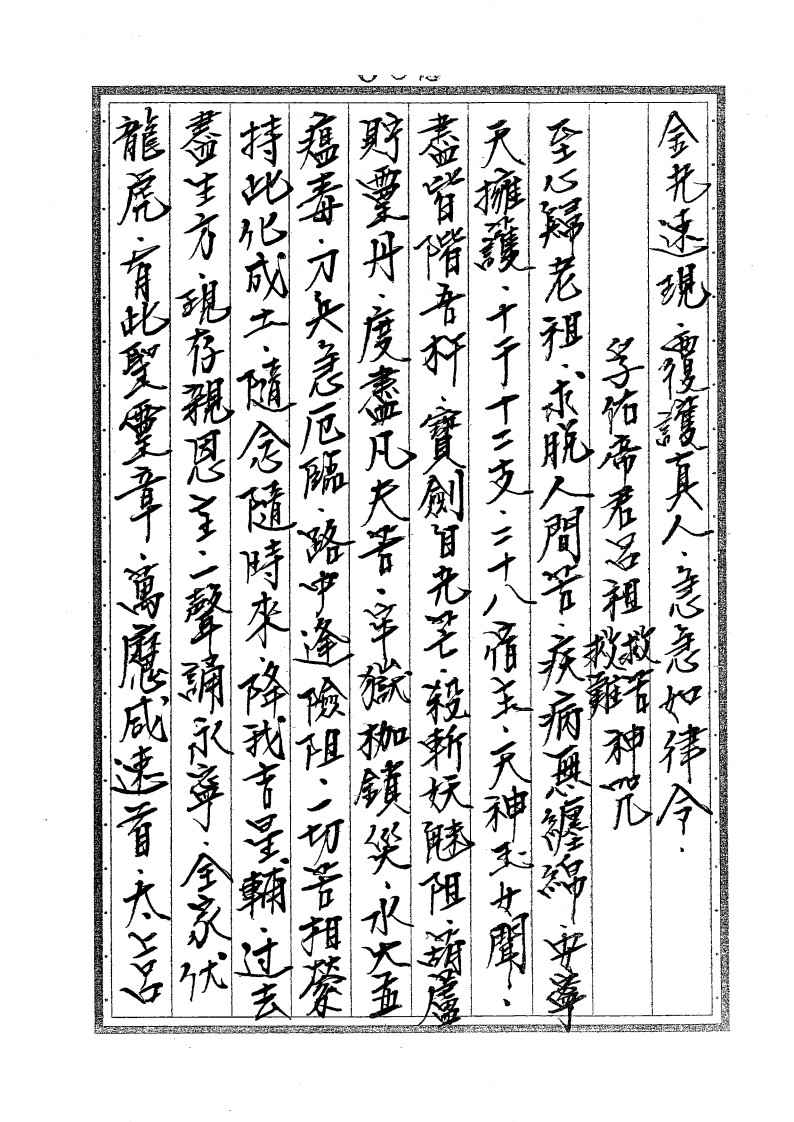 金光速現．覆護真人．急急如律令．
孚佑帝君呂祖救苦救難神咒
至心歸老祖．求脫人間苦．疾病無纏綿．安寧
天擁護．十干十二支．二十八宿主．天神玉女聞．
盡皆階吾杯．寶劍自光芒．殺斬妖魅阻．葫蘆
貯靈丹．度盡凡夫苦．牢獄枷鎖災．水火五
瘟毒．刀兵急厄臨．路中逢險阻．一切苦相縈
持此化成土．隨念隨時來．降我吉星輔．过去
盡生方．現存親恩主．一聲誦永寧．全家伏
龍虎．有此聖靈章．萬應咸速首．太上呂